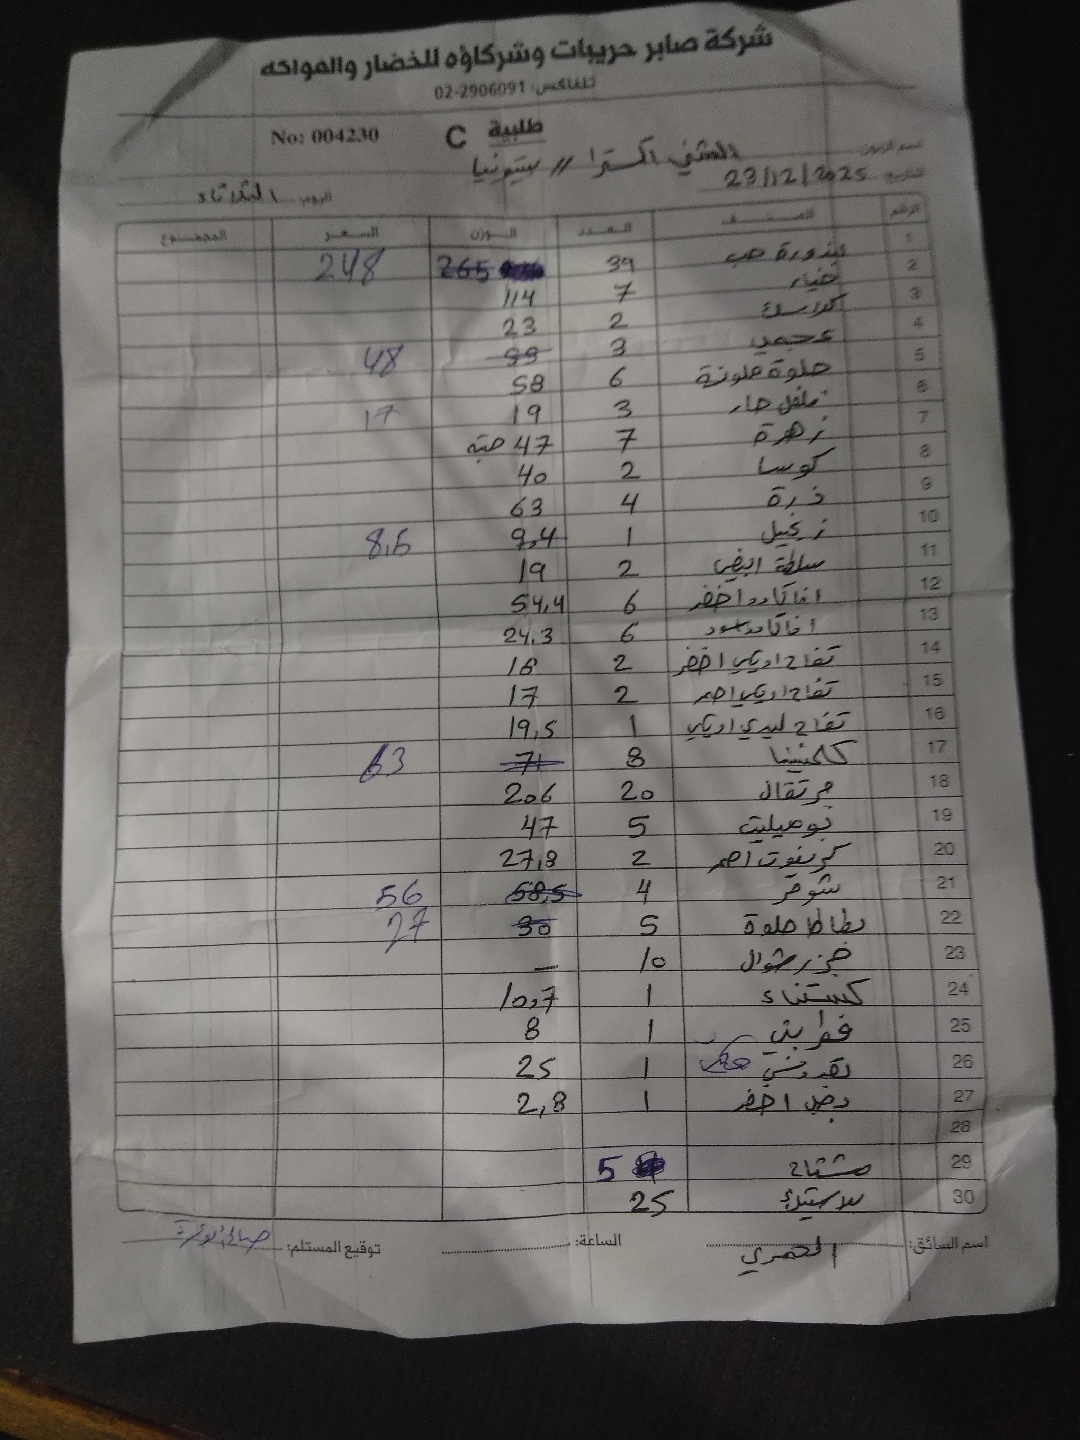 شركة صابر حريبات وشركاؤه للخضار والفواكه
تلفاكس: 02-2906091
No: 004230 طلبية C
اسم الزبون: الشني اكسترا // بيتونيا
التاريخ: 23/12/2025 اليوم: الثلاثاء
الرقم الصنف العدد الوزن السعر المجموع
1 بندورة حب 39 265 248
2 خيار 7 114
3 كلاسك 2 23
4 عجمي 3 99 48
5 حلوة ملونة 6 58
6 فلفل حار 3 19 17
7 زهرة 7 47 حبة
8 كوسا 2 40
9 ذرة 4 63
10 زنجبيل 1 9,4 8,5
11 سلطة ابيض 2 19
12 افاكادو اخضر 6 54,4
13 افاكادو اسود 6 24,3
14 تفاح امريكي اخضر 2 18
15 تفاح امريكي احمر 2 17
16 تفاح ليدي امريكي 1 19,5
17 كلمنتينا 8 71 63
18 برتقال 20 206
19 بوميليت 5 47
20 كريفوت احمر 2 27,8
21 شومر 4 58,5 56
22 بطاطا حلوة 5 30 27
23 جزر شوال 10 —
24 كستناء 1 10,7
25 1 8
26 بقدونس 1 25
27 بصل اخضر 1 2,8
28
29 مشتاح 5
30 بلاستيك 25
اسم السائق: العمري الساعة: توقيع المستلم: